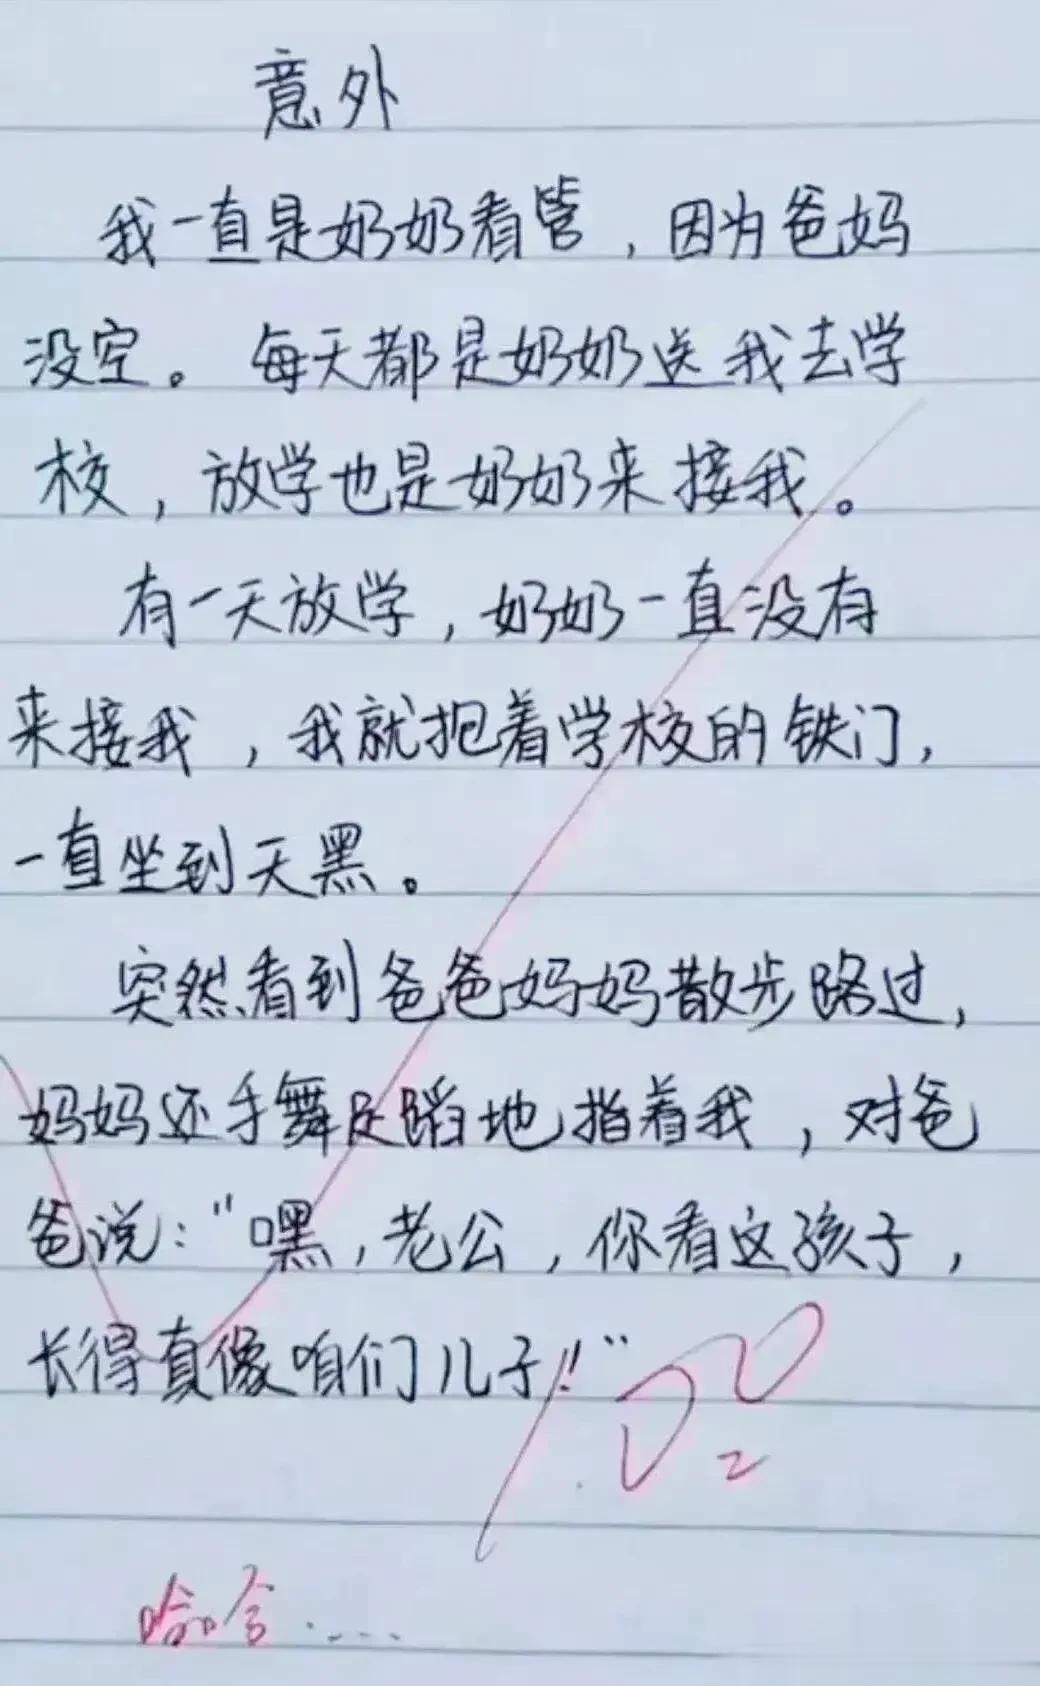 意外
我一直是奶奶看管，因为爸妈
没空。每天都是奶奶送我去学
校，放学也是奶奶来接我。
有一天放学，奶奶一直没有
来接我，我就抱着学校的铁门，
一直坐到天黑。
突然看到爸爸妈妈散步路过，
妈妈还手舞足蹈地指着我，对爸
爸说："嘿，老公，你看这孩子，
长得真像咱们儿子！"
哈哈......